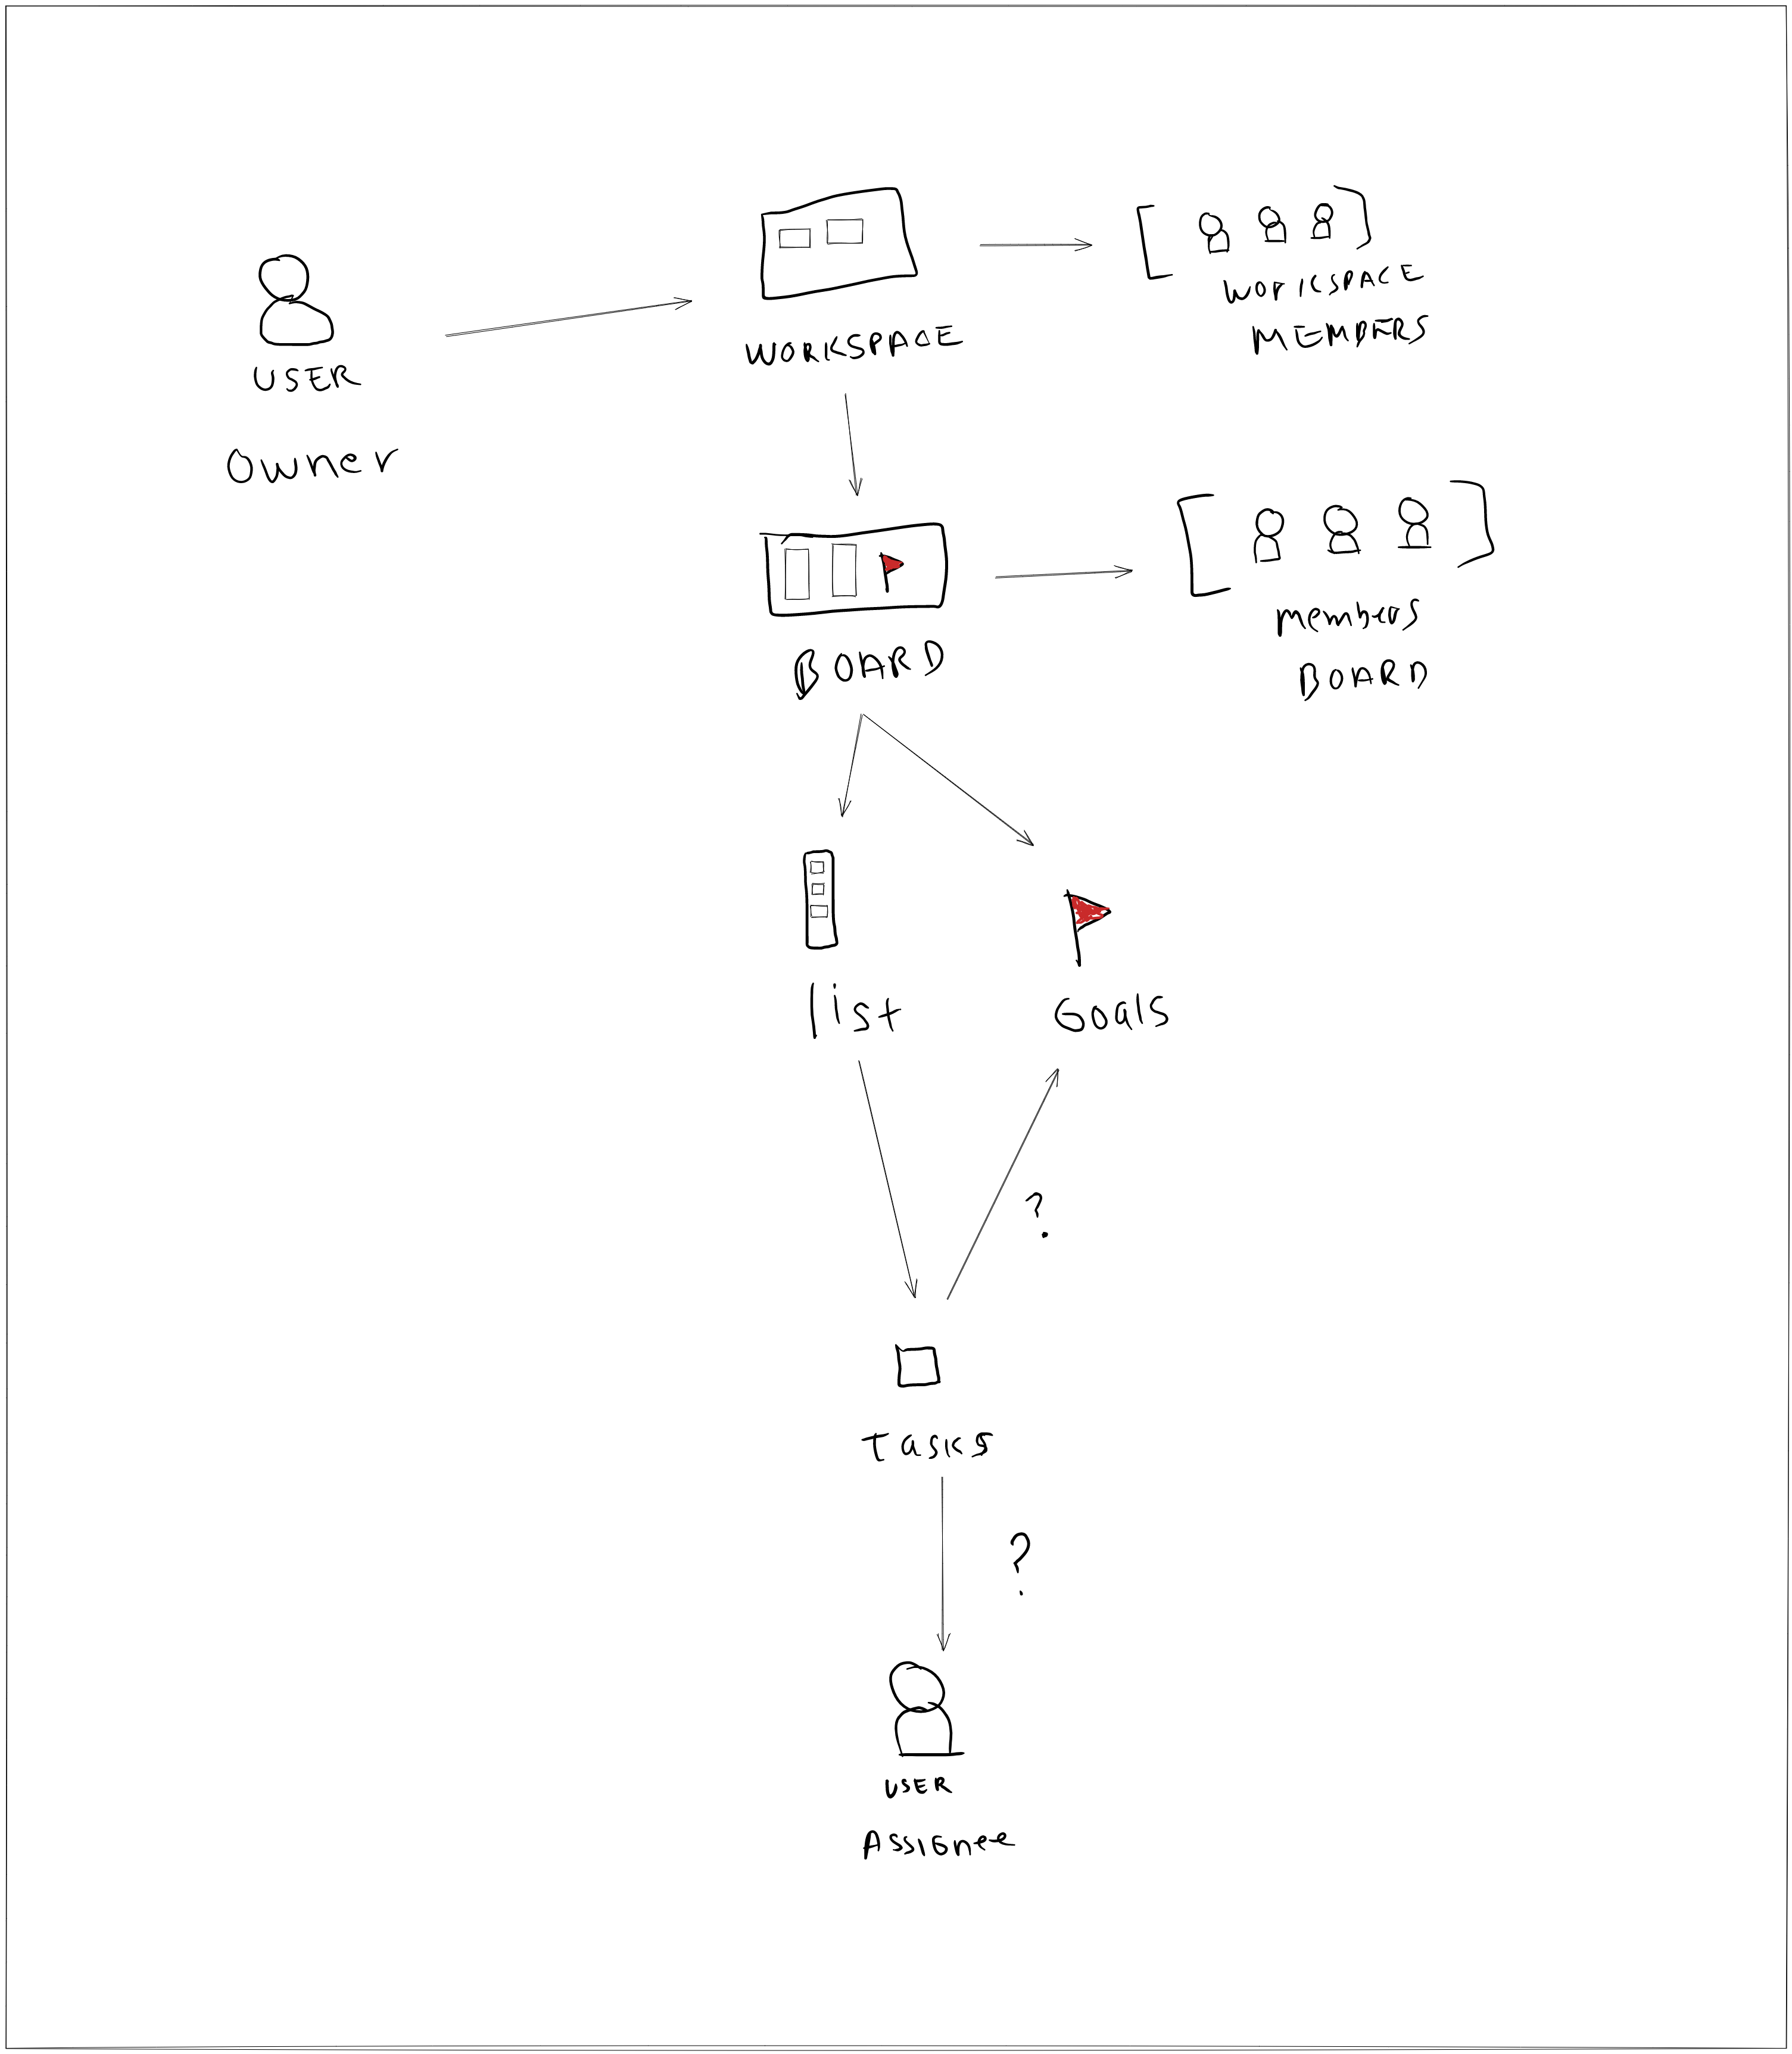 USER
Owner
WORKSPACE
WORKSPACE
MEMBERS
BOARD
members
BOARD
list
Goals
?
Tasks
?
USER
Assignee